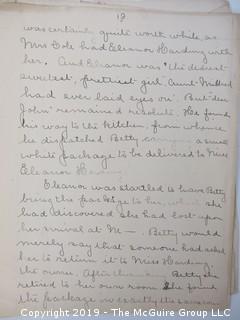 19
was certainly quite worth while as
Mrs Cole had Eleanor Harding with
her. And Eleanor was "the dearest
sweetest, prettiest girl" Aunt Mildred
had ever laid eyes on. But "dear
John" remained resolute. He found
his way to the kitchen, from whence
he dispatched Betty carrying a small
white package to be delivered to Miss
Eleanor Harding.
Eleanor was startled to have Betty
bring the package to her, which she
had discovered she had lost upon
her arrival at Mc—. Betty would
merely say that someone had asked
her to return it to Miss Harding,
the owner. After thanking Betty she
retired to her own room. She found
the package in exactly the same
Copyright 2019 - The McGuire Group